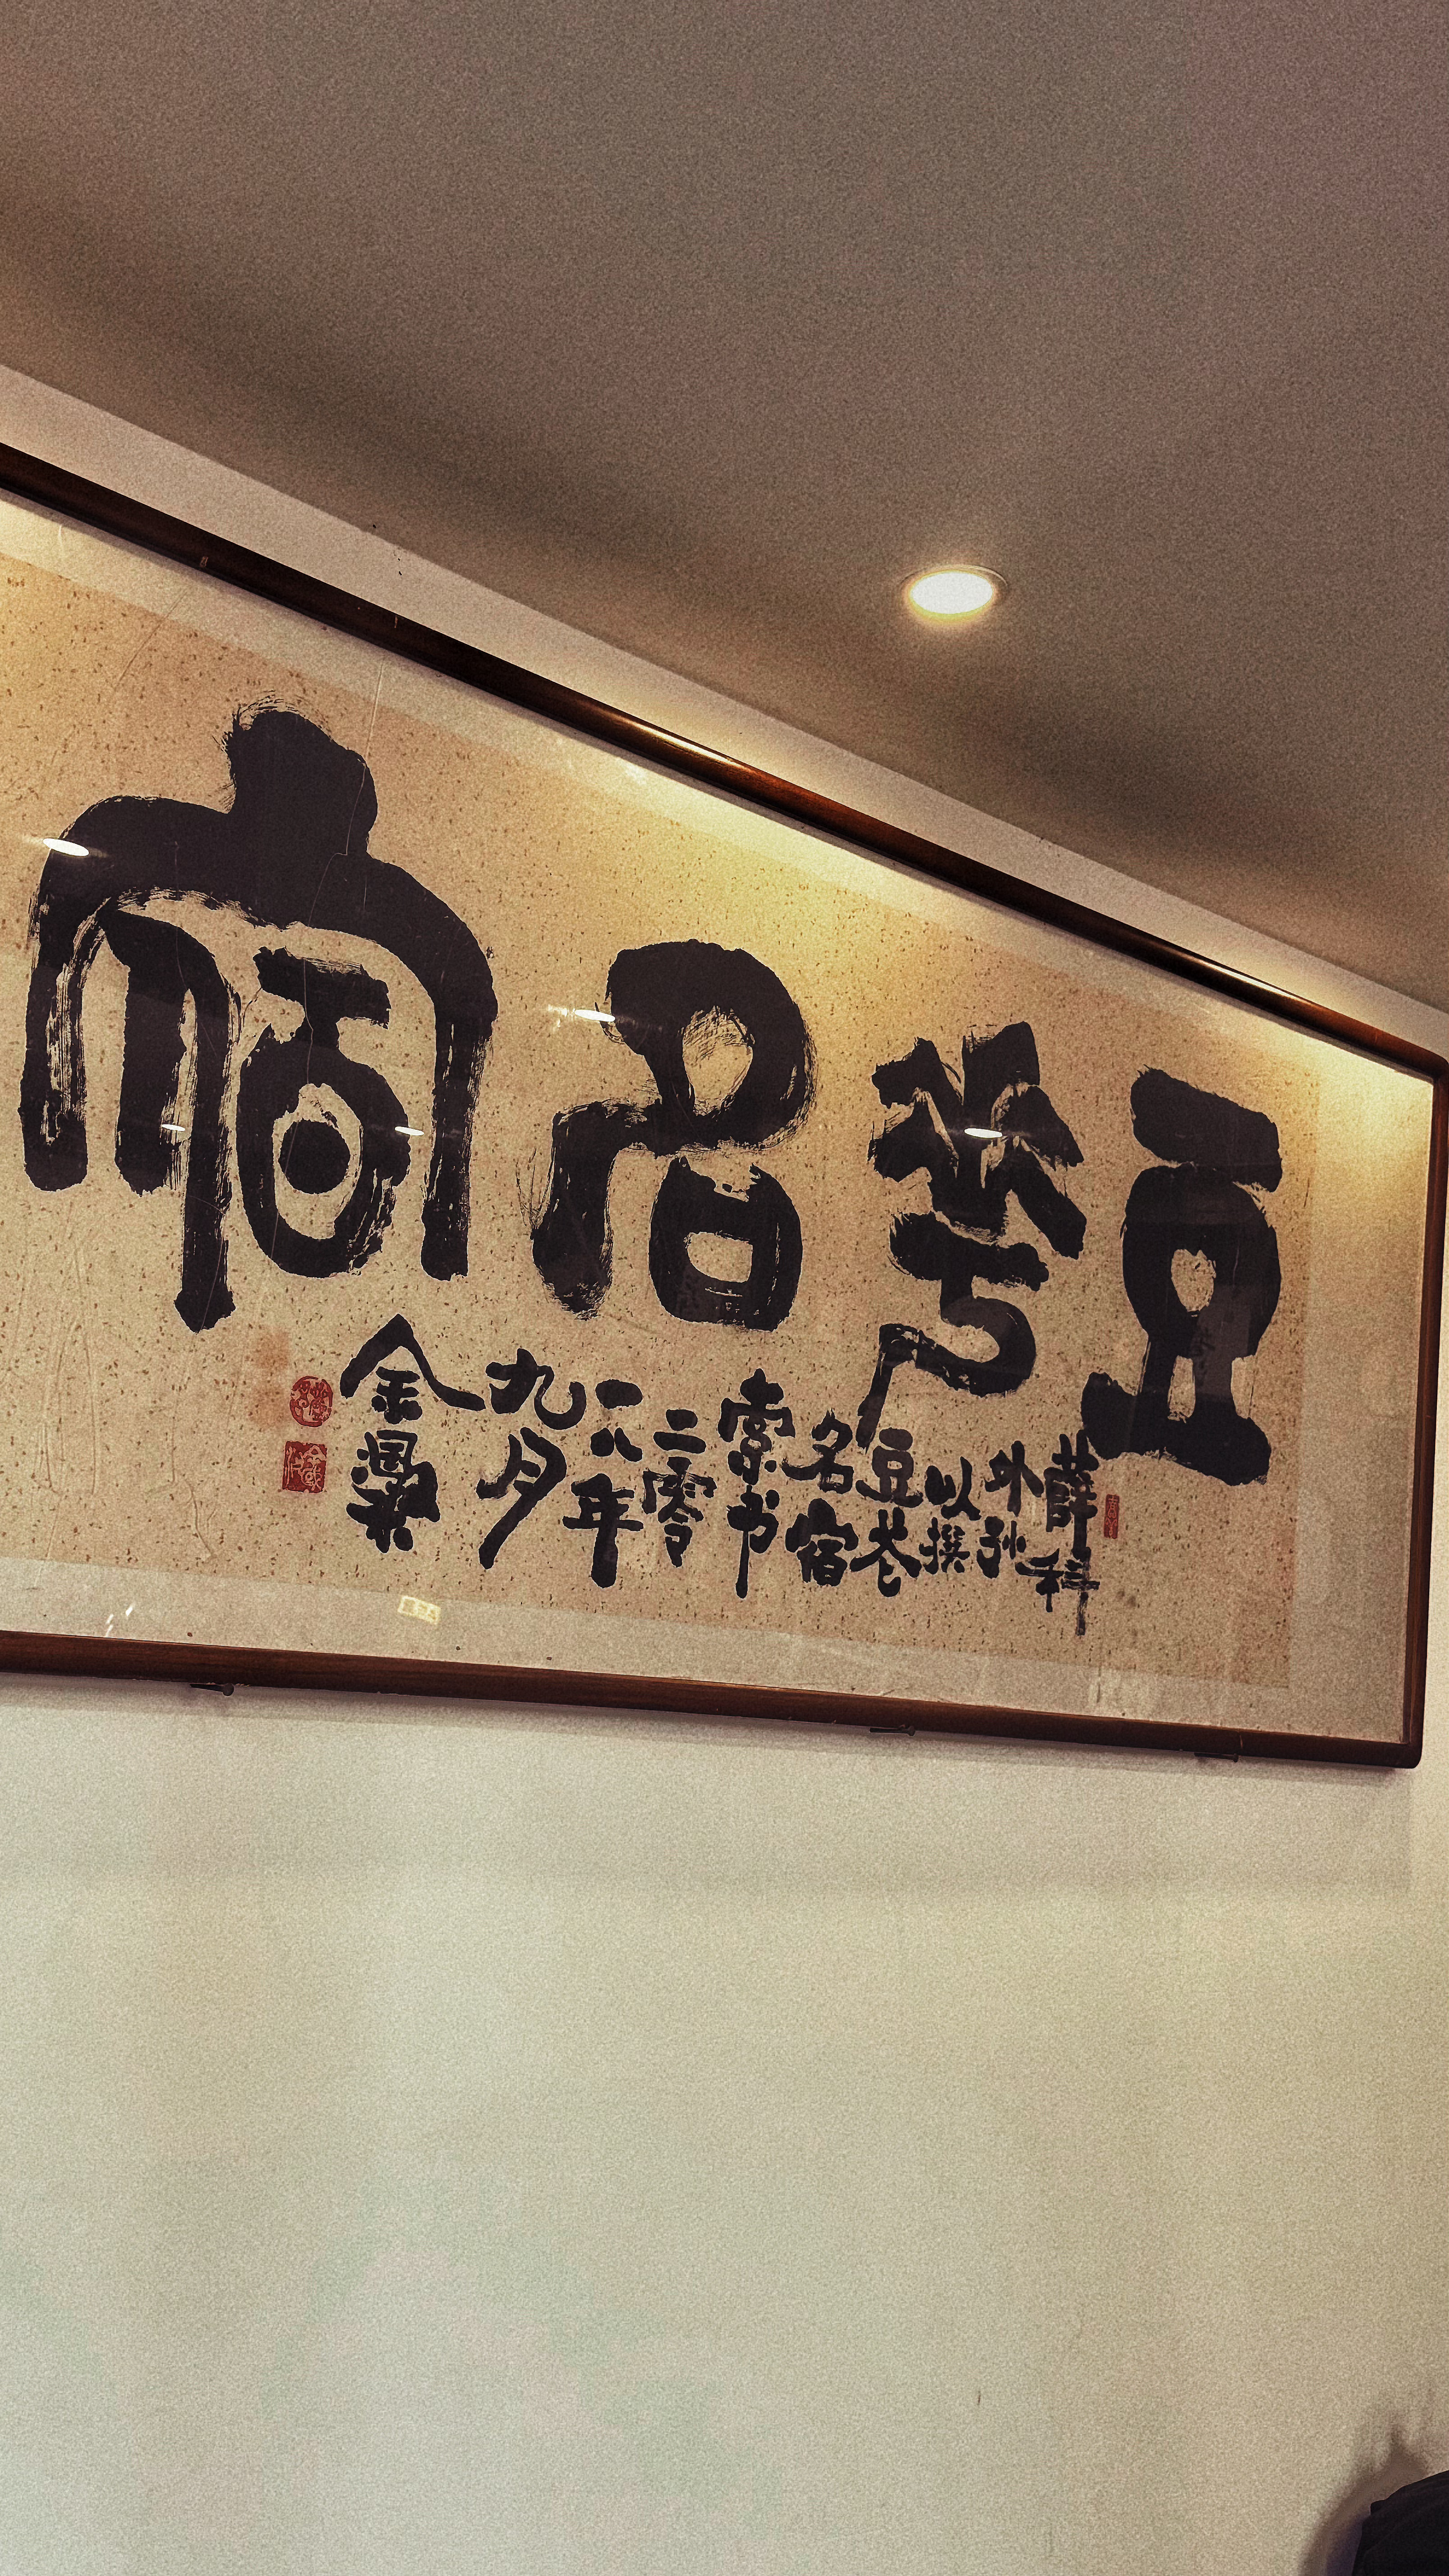 豆花名宿
薛科
外孙
以撰
豆花
名宿
索书
二零
一八年
九月
金國